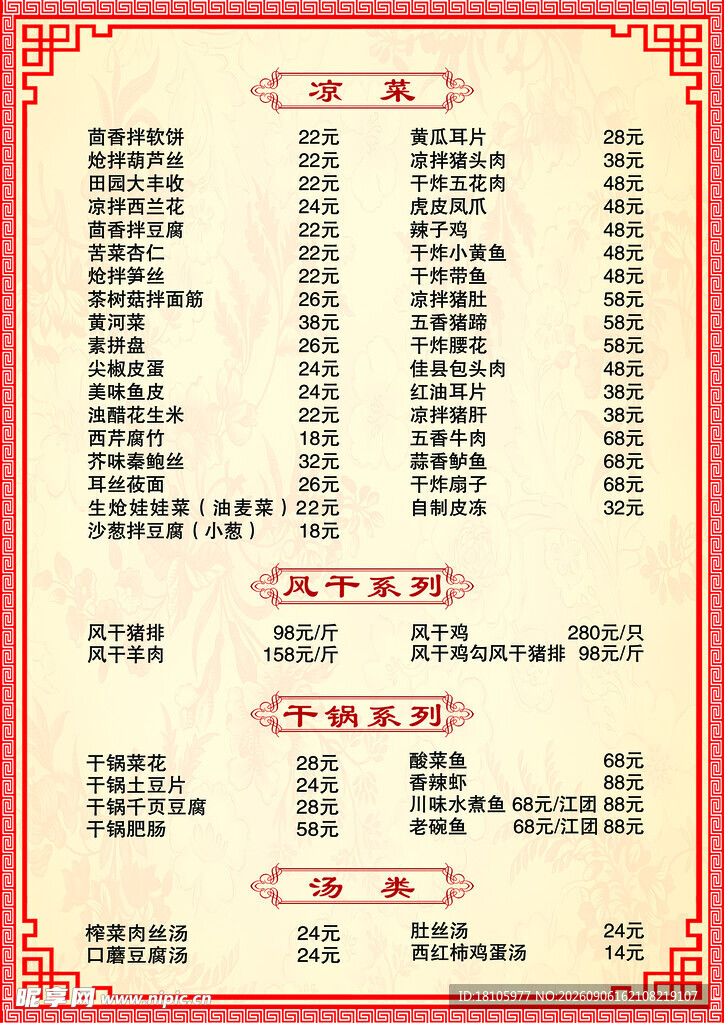 凉 菜
茴香拌软饼 22元
炝拌葫芦丝 22元
田园大丰收 22元
凉拌西兰花 24元
茴香拌豆腐 22元
苦菜杏仁 22元
炝拌笋丝 22元
茶树菇拌面筋 26元
黄河菜 38元
素拼盘 26元
尖椒皮蛋 24元
美味鱼皮 24元
浊醋花生米 22元
西芹腐竹 18元
芥味秦鲍丝 32元
耳丝莜面 26元
生炝娃娃菜（油麦菜） 22元
沙葱拌豆腐（小葱） 18元
黄瓜耳片 28元
凉拌猪头肉 38元
干炸五花肉 48元
虎皮凤爪 48元
辣子鸡 48元
干炸小黄鱼 48元
干炸带鱼 48元
凉拌猪肚 58元
五香猪蹄 58元
干炸腰花 58元
佳县包头肉 48元
红油耳片 38元
凉拌猪肝 38元
五香牛肉 68元
蒜香鲈鱼 68元
干炸扇子 68元
自制皮冻 32元
风干系列
风干猪排 98元/斤
风干羊肉 158元/斤
风干鸡 280元/只
风干鸡勾风干猪排 98元/斤
干锅系列
干锅菜花 28元
干锅土豆片 24元
干锅千页豆腐 28元
干锅肥肠 58元
酸菜鱼 68元
香辣虾 88元
川味水煮鱼 68元/江团 88元
老碗鱼 68元/江团 88元
汤 类
榨菜肉丝汤 24元
口蘑豆腐汤 24元
肚丝汤 24元
西红柿鸡蛋汤 14元
昵享网 www.nipic.cn
ID:18105977 NO:20260906162108219107